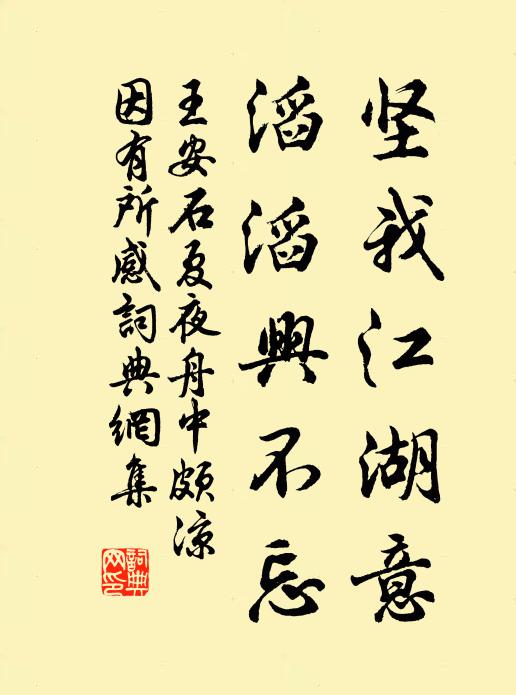 坚我江湖意
滔滔興不忘
王安石夏夜舟中颇凉
因有所感詞典網集
詞典網印